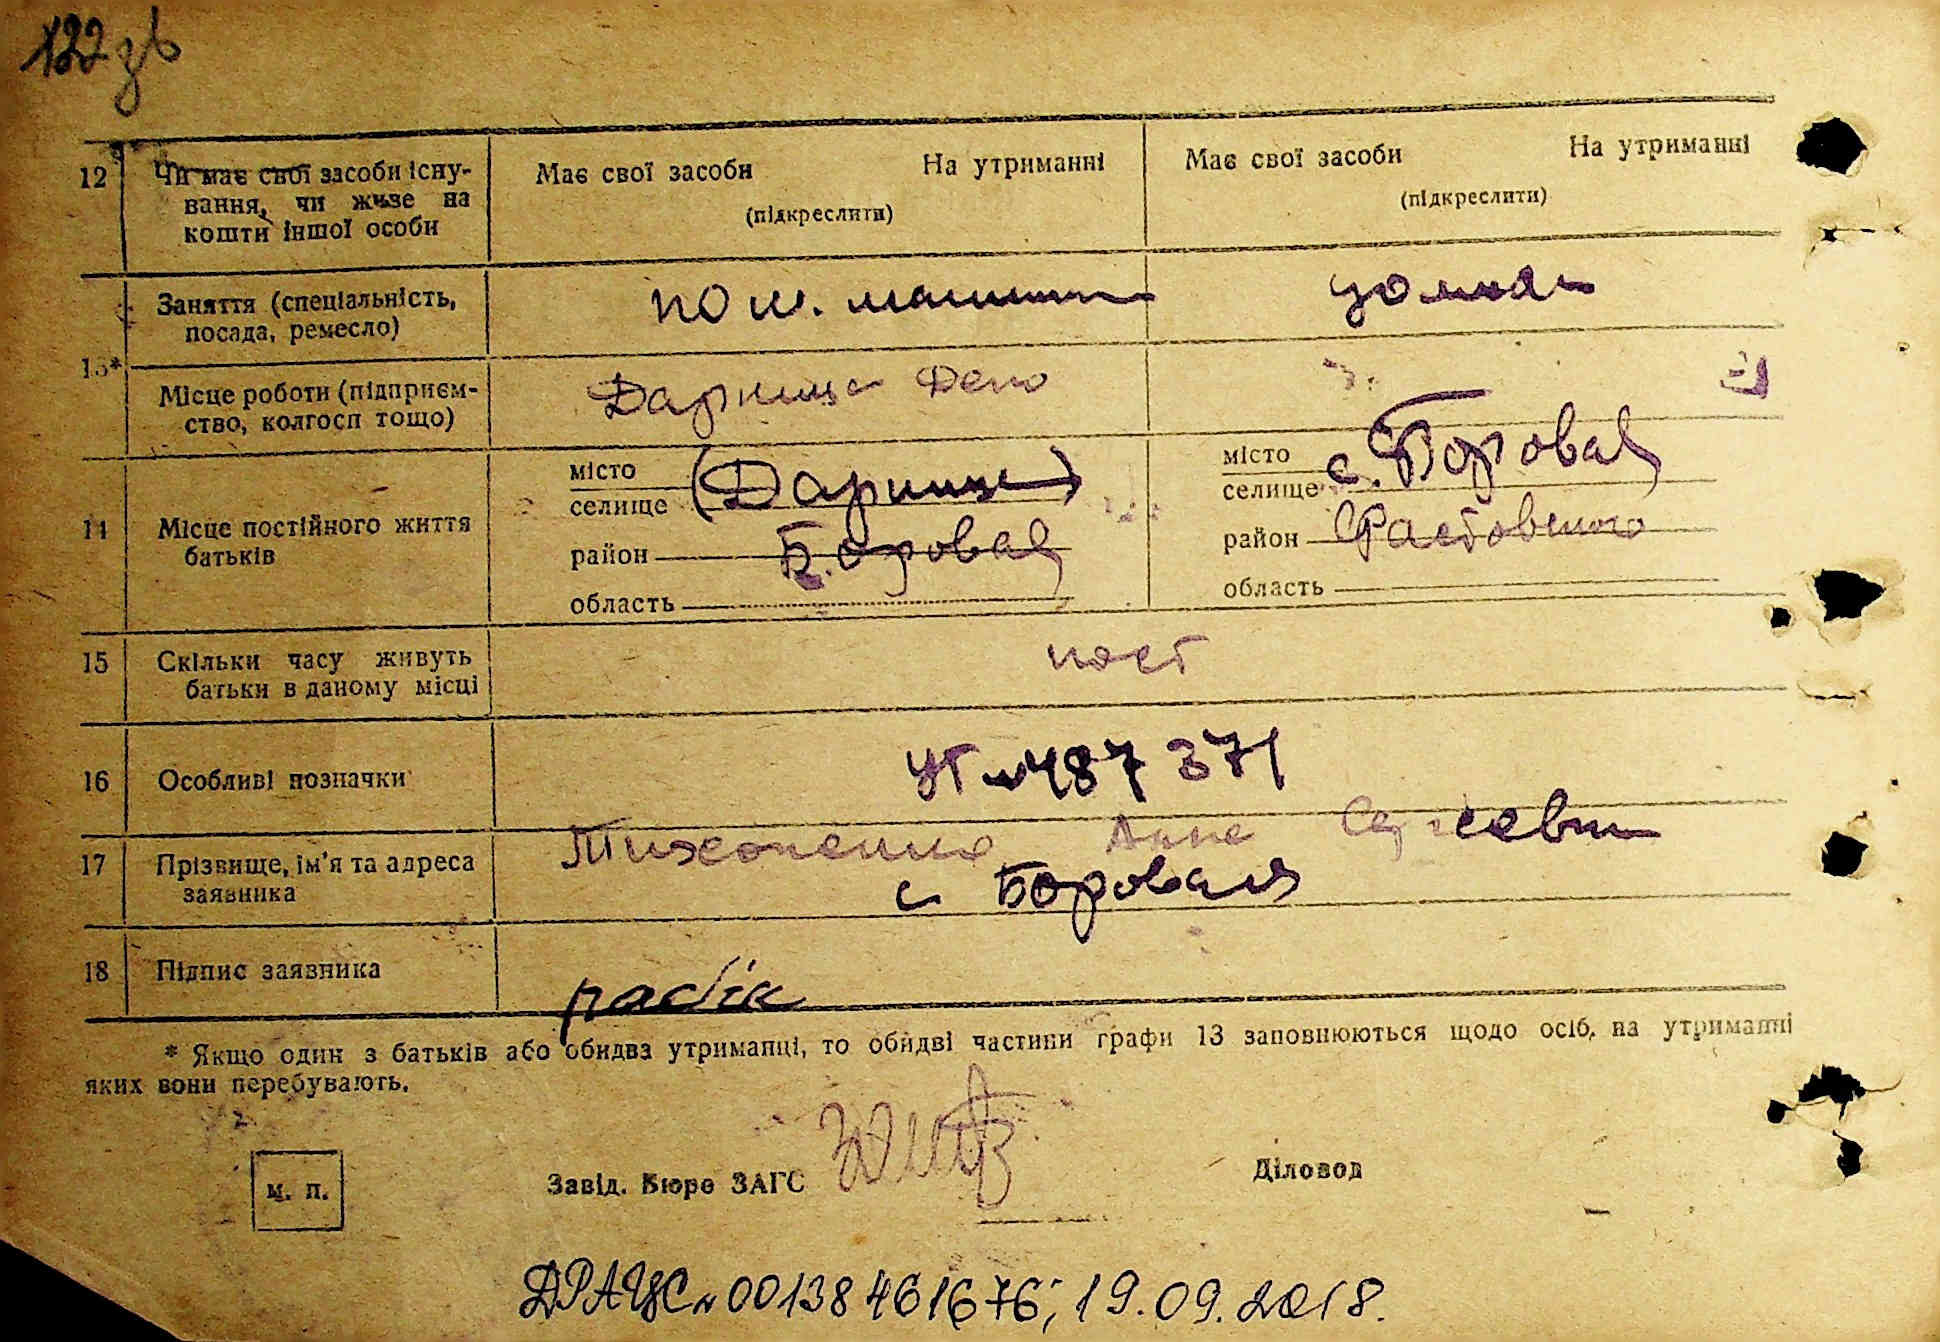 122 зв
12 Чи має свої засоби існування, чи живе на кошти іншої особи
Має свої засоби На утриманні
(підкреслити)
Має свої засоби На утриманні
(підкреслити)
13*
Заняття (спеціальність, посада, ремесло)
пом. машин
домхоз
Місце роботи (підприємство, колгосп тощо)
Дарница Депо
14 Місце постійного життя батьків
місто
селище (Дарница)
район Боровая
область
місто
селище с. Боровая
район Фастовского
область
15 Скільки часу живуть батьки в даному місці
пост
16 Особливі позначки
УГ № 487 371
17 Прізвище, ім'я та адреса заявника
Тихоненко Анна Сергеевн
с Боровая
18 Підпис заявника
* Якщо один з батьків або обидва утриманці, то обидві частини графи 13 заповнюються щодо осіб, на утриманні
яких вони перебувають.
м. п.
Завід. Бюро ЗАГС
Діловод
ДРАЦС № 00138461676; 19.09.2018.